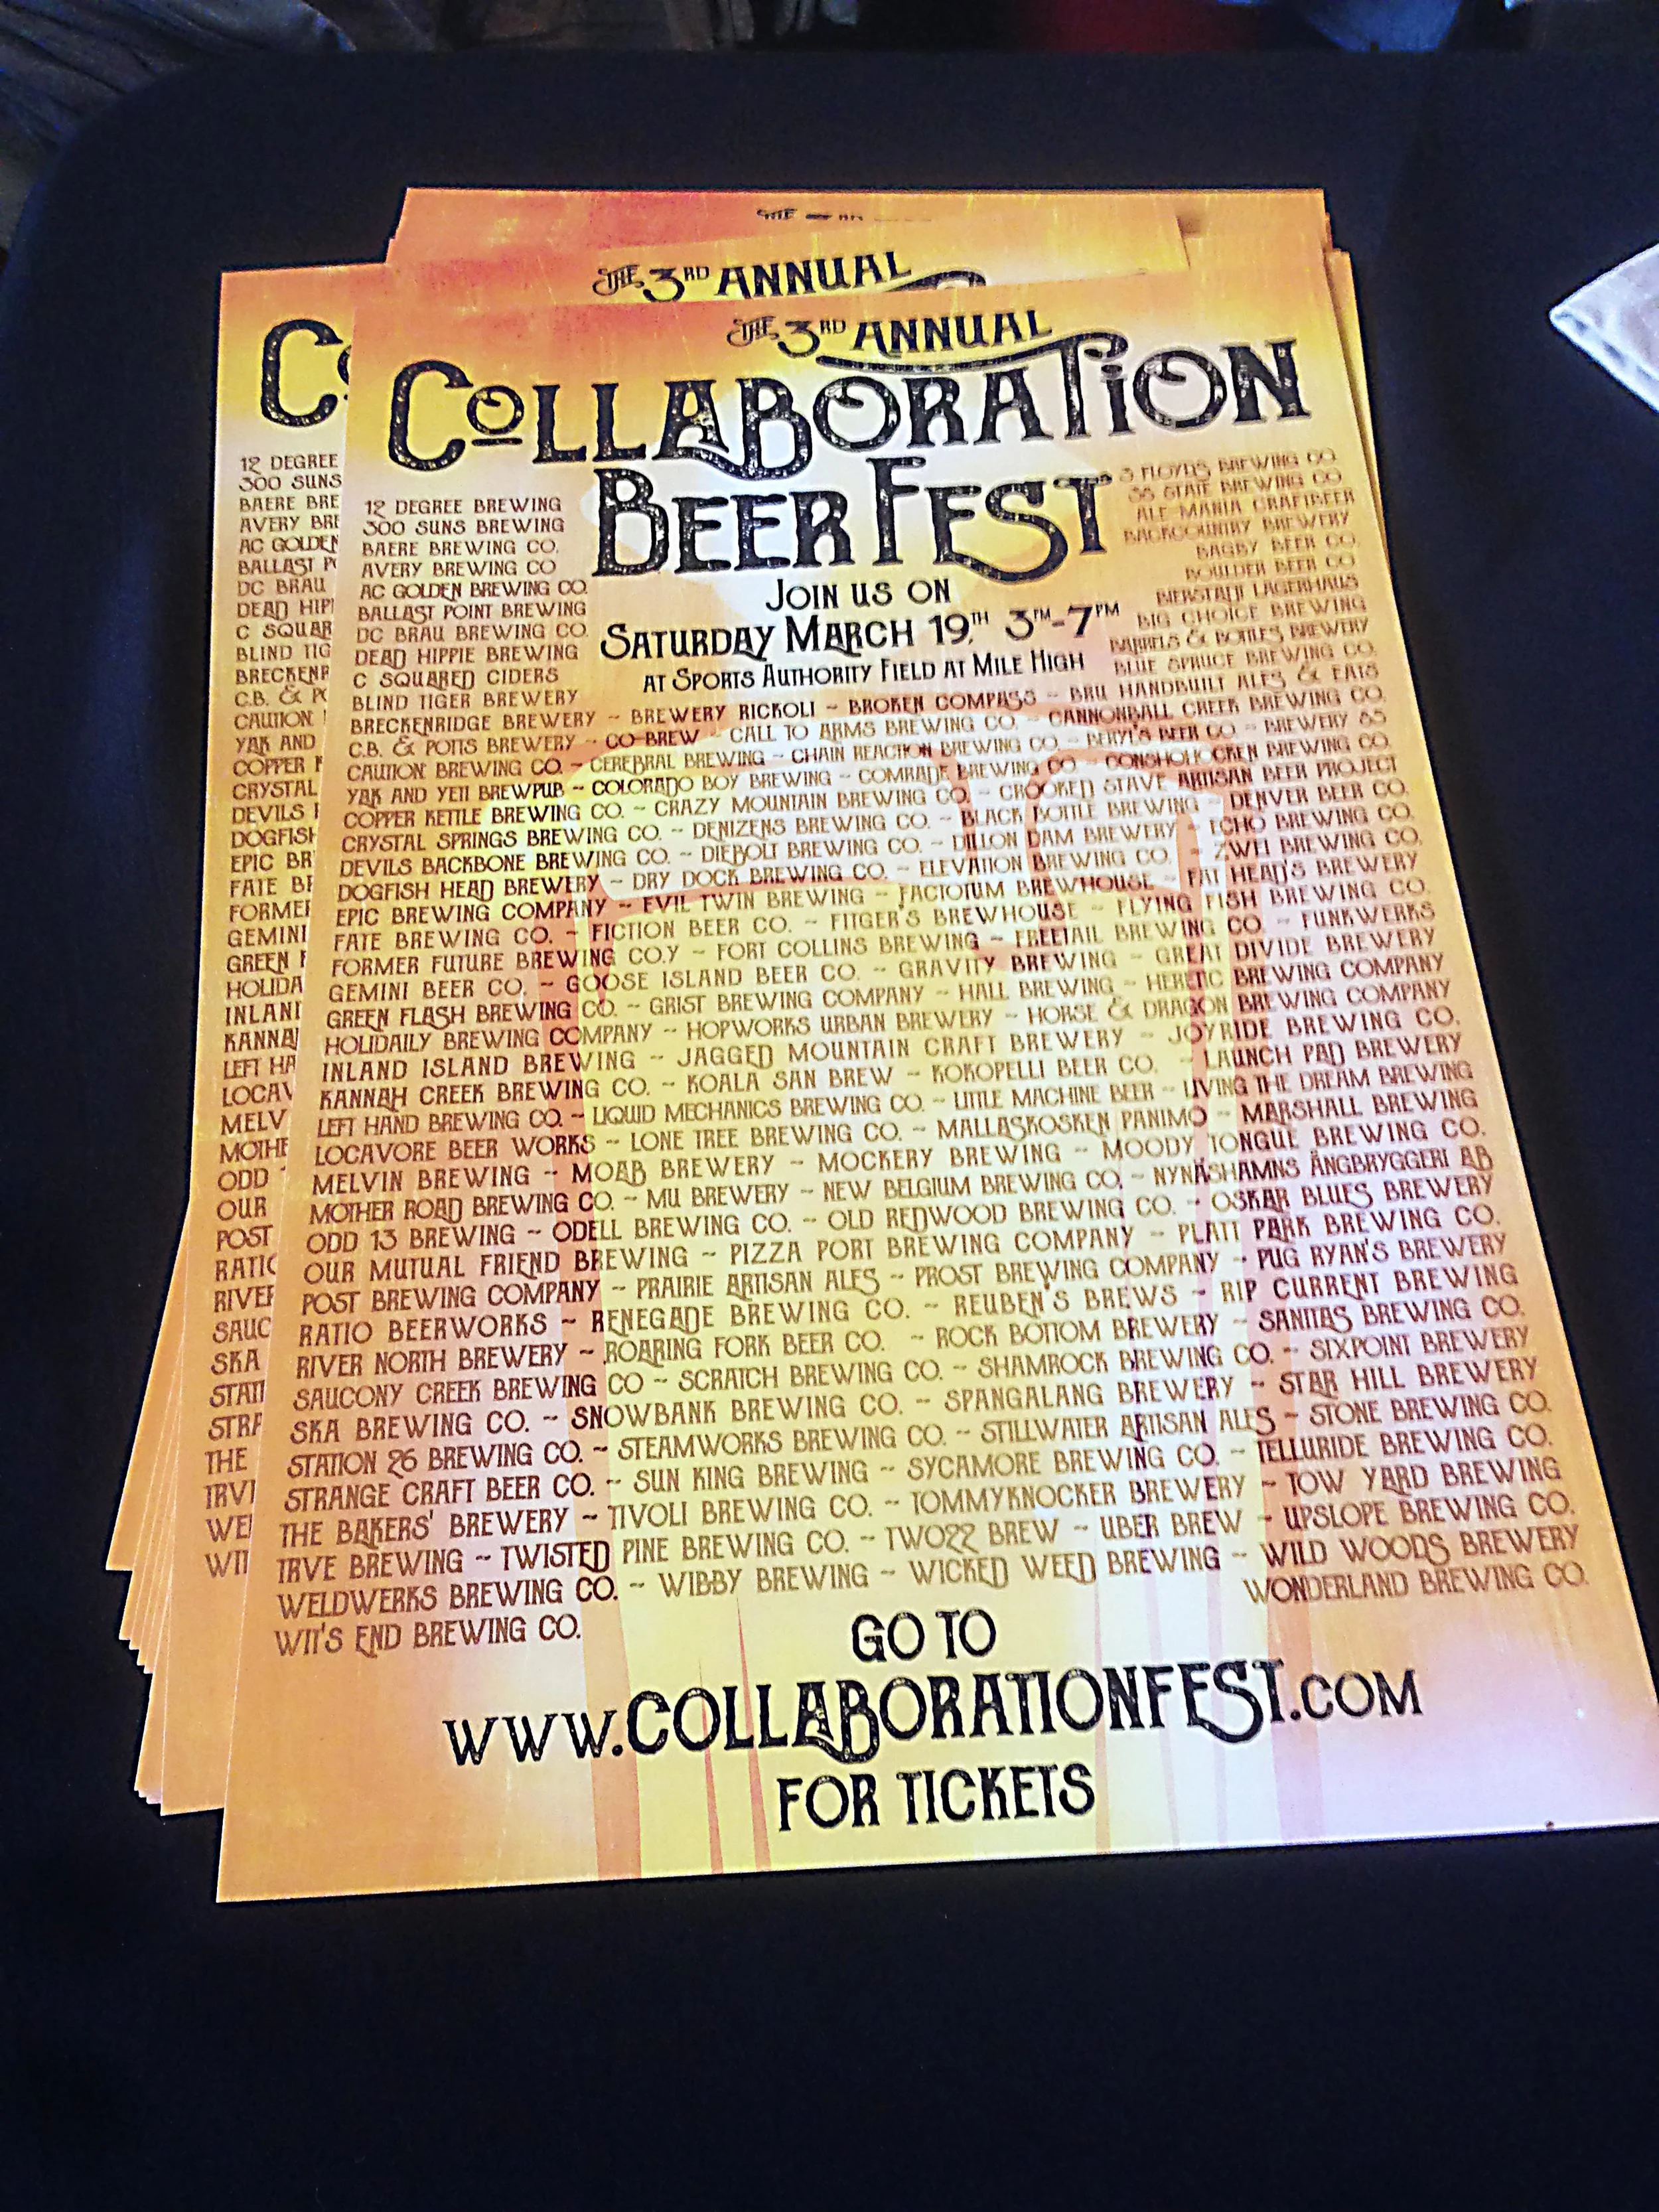 THE 3RD ANNUAL
THE 3RD ANNUAL
COLLABORATION
BEER FEST
JOIN US ON
SATURDAY MARCH 19TH 3PM-7PM
AT SPORTS AUTHORITY FIELD AT MILE HIGH
12 DEGREE BREWING
300 SUNS BREWING
BAERE BREWING CO.
AVERY BREWING CO
AC GOLDEN BREWING CO.
BALLAST POINT BREWING
DC BRAU BREWING CO.
DEAD HIPPIE BREWING
C SQUARED CIDERS
BLIND TIGER BREWERY
3 FLOYDS BREWING CO.
38 STATE BREWING CO
ALE MANIA CRAFTBEER
BACKCOUNTRY BREWERY
BAGBY BEER CO.
BOULDER BEER CO
BIERSTADT LAGERHAUS
BIG CHOICE BREWING
BARRELS & BOTTLES BREWERY
BLUE SPRUCE BREWING CO.
BRECKENRIDGE BREWERY ~ BREWERY RICKOLI ~ BROKEN COMPASS ~ BRU HANDBUILT ALES & EATS
C.B. & POTTS BREWERY ~ CO-BREW ~ CALL TO ARMS BREWING CO. ~ CANNONBALL CREEK BREWING CO.
CAUTION BREWING CO. ~ CEREBRAL BREWING ~ CHAIN REACTION BREWING CO ~ BERYL'S BEER CO ~ BREWERY 85
YAK AND YETI BREWPUB ~ COLORADO BOY BREWING ~ COMRADE BREWING CO ~ CONSHOHOCKEN BREWING CO.
COPPER KETTLE BREWING CO. ~ CRAZY MOUNTAIN BREWING CO. ~ CROOKED STAVE ARTISAN BEER PROJECT
CRYSTAL SPRINGS BREWING CO. ~ DENIZENS BREWING CO. ~ BLACK BOTTLE BREWING ~ DENVER BEER CO.
DEVILS BACKBONE BREWING CO. ~ DIEBOLT BREWING CO. ~ DILLON DAM BREWERY ~ ECHO BREWING CO.
DOGFISH HEAD BREWERY ~ DRY DOCK BREWING CO. ~ ELEVATION BREWING CO. ~ ZWEI BREWING CO.
EPIC BREWING COMPANY ~ EVIL TWIN BREWING ~ FACTOTUM BREWHOUSE ~ FAT HEAD'S BREWERY
FATE BREWING CO. ~ FICTION BEER CO. ~ FITGER'S BREWHOUSE ~ FLYING FISH BREWING CO.
FORMER FUTURE BREWING CO.Y ~ FORT COLLINS BREWING ~ FREETAIL BREWING CO. ~ FUNKWERKS
GEMINI BEER CO. ~ GOOSE ISLAND BEER CO. ~ GRAVITY BREWING ~ GREAT DIVIDE BREWERY
GREEN FLASH BREWING CO. ~ GRIST BREWING COMPANY ~ HALL BREWING ~ HERETIC BREWING COMPANY
HOLIDAILY BREWING COMPANY ~ HOPWORKS URBAN BREWERY ~ HORSE & DRAGON BREWING COMPANY
INLAND ISLAND BREWING ~ JAGGED MOUNTAIN CRAFT BREWERY ~ JOYRIDE BREWING CO.
KANNAH CREEK BREWING CO. ~ KOALA SAN BREW ~ KOKOPELLI BEER CO. ~ LAUNCH PAD BREWERY
LEFT HAND BREWING CO. ~ LIQUID MECHANICS BREWING CO. ~ LITTLE MACHINE BEER ~ LIVING THE DREAM BREWING
LOCAVORE BEER WORKS ~ LONE TREE BREWING CO. ~ MALLASKOSKEN PANIMO ~ MARSHALL BREWING
MELVIN BREWING ~ MOAB BREWERY ~ MOCKERY BREWING ~ MOODY TONGUE BREWING CO.
MOTHER ROAD BREWING CO. ~ MU BREWERY ~ NEW BELGIUM BREWING CO. ~ NYNÄSHAMNS ÅNGBRYGGERI AB
ODD 13 BREWING ~ ODELL BREWING CO. ~ OLD REDWOOD BREWING CO. ~ OSKAR BLUES BREWERY
OUR MUTUAL FRIEND BREWING ~ PIZZA PORT BREWING COMPANY ~ PLATT PARK BREWING CO.
POST BREWING COMPANY ~ PRAIRIE ARTISAN ALES ~ PROST BREWING COMPANY ~ PUG RYAN'S BREWERY
RATIO BEERWORKS ~ RENEGADE BREWING CO. ~ REUBEN'S BREWS ~ RIP CURRENT BREWING
RIVER NORTH BREWERY ~ ROARING FORK BEER CO. ~ ROCK BOTTOM BREWERY ~ SANITAS BREWING CO.
SAUCONY CREEK BREWING CO ~ SCRATCH BREWING CO. ~ SHAMROCK BREWING CO. ~ SIXPOINT BREWERY
SKA BREWING CO. ~ SNOWBANK BREWING CO. ~ SPANGALANG BREWERY ~ STAR HILL BREWERY
STATION 26 BREWING CO. ~ STEAMWORKS BREWING CO. ~ STILLWATER ARTISAN ALES ~ STONE BREWING CO.
STRANGE CRAFT BEER CO. ~ SUN KING BREWING ~ SYCAMORE BREWING CO. ~ TELLURIDE BREWING CO.
THE BAKERS' BREWERY ~ TIVOLI BREWING CO. ~ TOMMYKNOCKER BREWERY ~ TOW YARD BREWING
TRVE BREWING ~ TWISTED PINE BREWING CO. ~ TWO22 BREW ~ UBER BREW ~ UPSLOPE BREWING CO.
WELDWERKS BREWING CO. ~ WIBBY BREWING ~ WICKED WEED BREWING ~ WILD WOODS BREWERY
WIT'S END BREWING CO. WONDERLAND BREWING CO.
GO TO
WWW.COLLABORATIONFEST.COM
FOR TICKETS